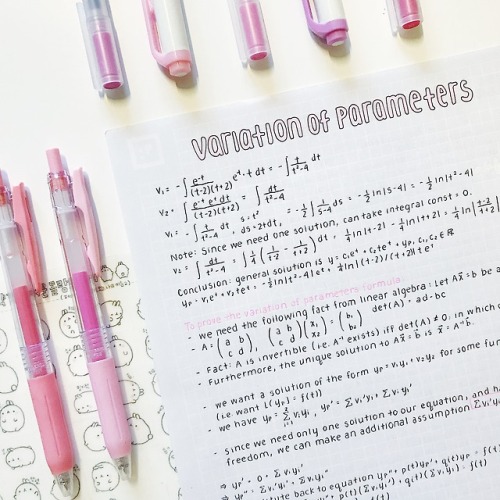 variation of Parameters
V₁ = -∫ e⁻ᵗ/((t-2)(t+2)) eᵗ·t dt = -∫ t/(t²-4) dt
V₂ = ∫ e⁻ᵗ eᵗ dt/((t-2)(t+2)) = ∫ dt/(t²-4)
V₁ = -∫ t/(t²-4) dt, s=t², ds=2tdt, = -½ ∫ 1/(s-4) ds = -½ ln|s-4| = -½ ln|t²-4|
Note: Since we need one solution, can take integral const = 0.
V₂ = ∫ dt/(t²-4) = ∫ ¼ (1/(t-2) - 1/(t+2)) dt = ¼ ln|t-2| - ¼ ln|t+2| = ¼ ln|(t-2)/(t+2)|
Conclusion: general solution is y = c₁eᵗ + c₂teᵗ + yp, c₁, c₂ ∈ ℝ
yp = v₁eᵗ + v₂teᵗ = -½ ln|t²-4|eᵗ + ¼ ln|(t-2)/(t+2)|teᵗ
To prove the variation of parameters formula
- we need the following fact from linear algebra: Let Ax̄ = b be a
- A = (a b / c d), (a b / c d)(x₁ / x₂) = (b₁ / b₂) det(A) = ad-bc
- Fact: A is invertible (i.e. A⁻¹ exists) iff det(A) ≠ 0, in which
- Furthermore, the unique solution to Ax̄ = b̄ is x̄ = A⁻¹b̄.
- we want a solution of the form yp = v₁y₁ + v₂y₂ for some fun
(i.e. want L(yp) = f(t))
- we have yp = Σ vᵢyᵢ, yp' = Σvᵢ'yᵢ + Σvᵢyᵢ'
- since we need only one solution to our equation, and ha
freedom, we can make an additional assumption Σvᵢ'y
⇒ yp' = 0 + Σvᵢyᵢ'
⇒ yp'' = Σvᵢ'yᵢ' + Σvᵢyᵢ''
back to equation yp'' + p(t)yp' + q(t)yp = f(t)